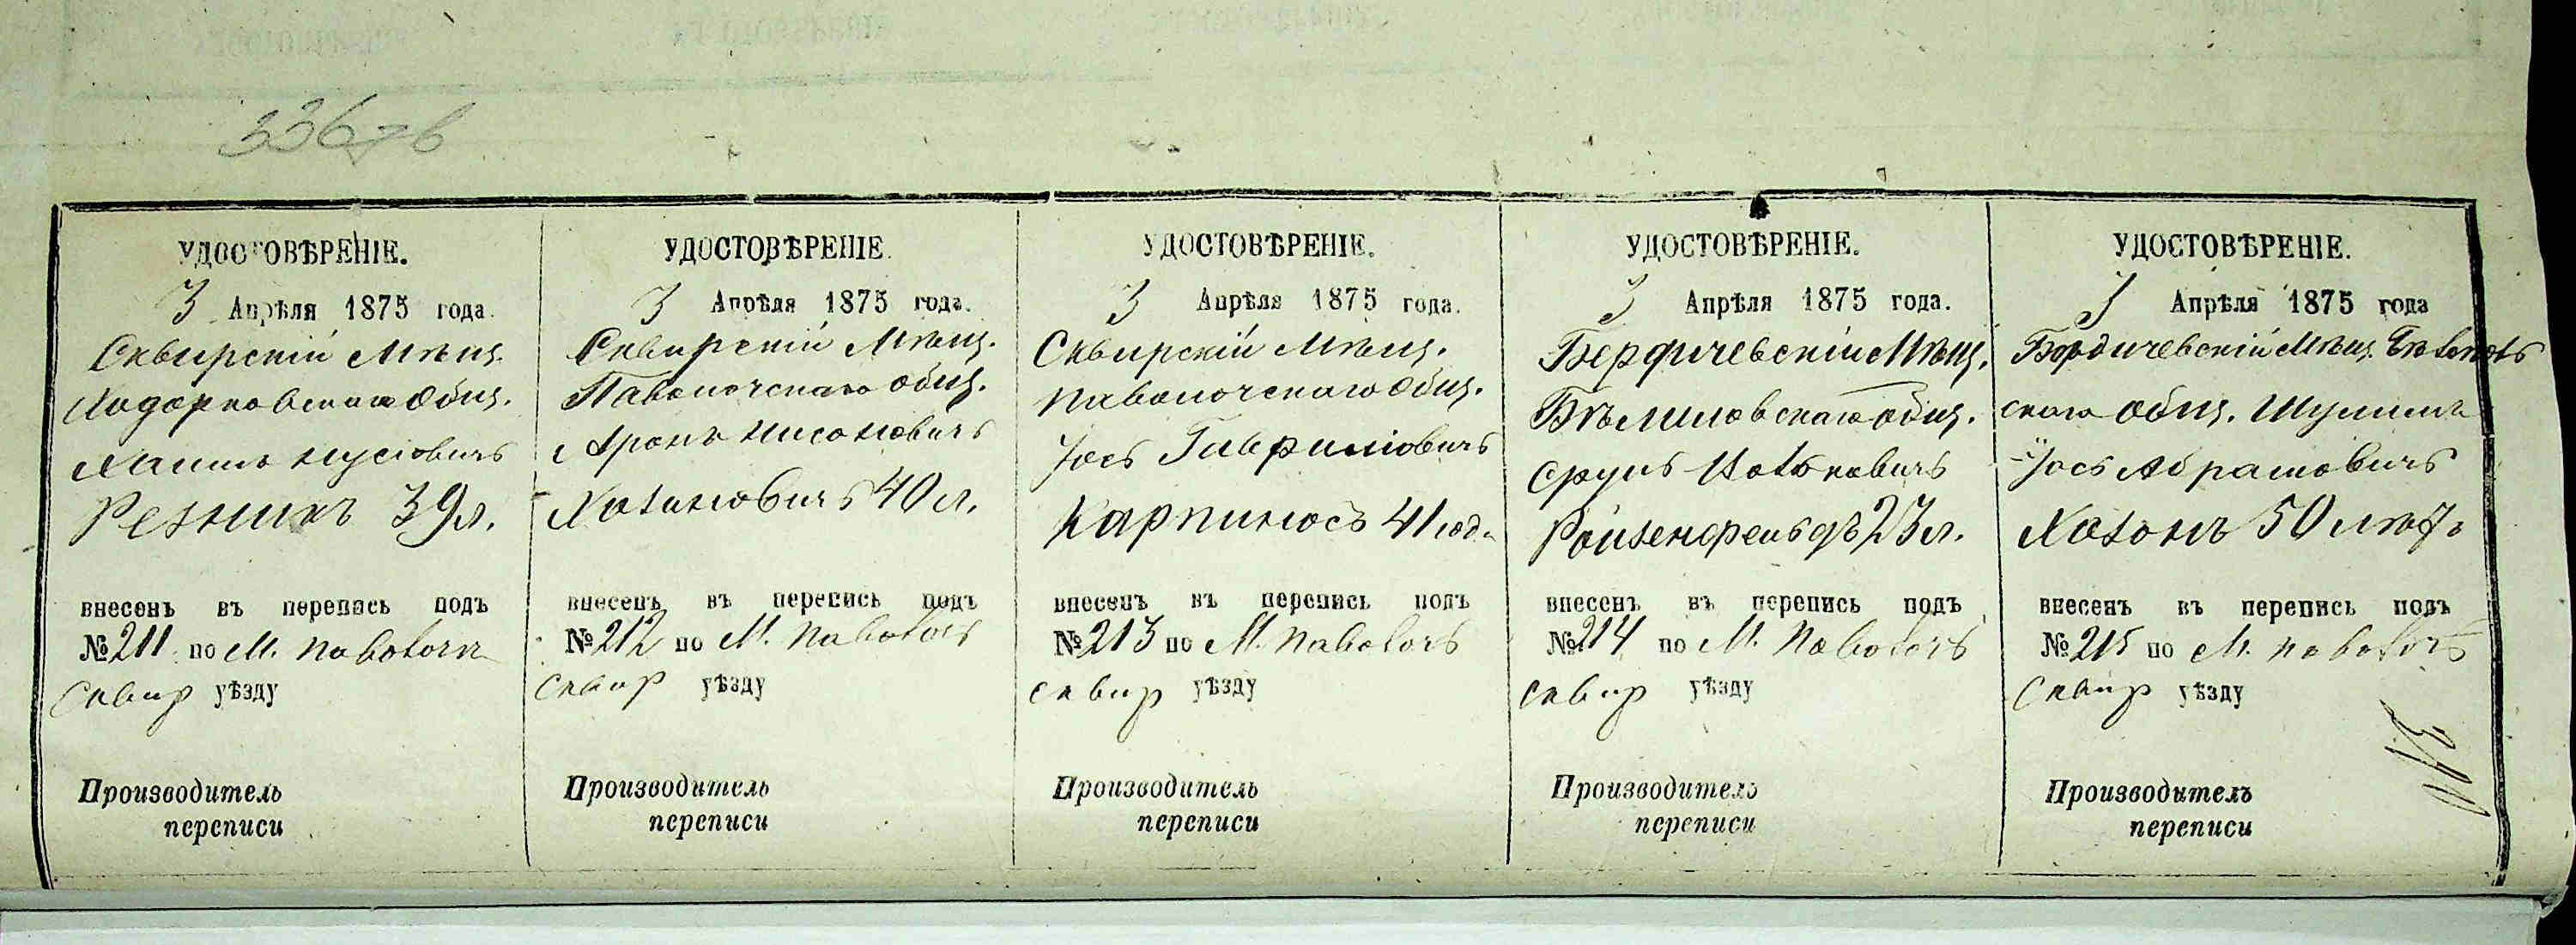 336
УДОСТОВѢРЕНІЕ.
3 Апрѣля 1875 года.
Сквирскій Мѣщ.
Ходорковскаго Общ.
Хаимъ Нусіовичъ
Резникъ 39 л.
внесенъ въ перепись подъ
№ 211 по М. Паволочи
Сквир уѣзду
Производитель
переписи
УДОСТОВѢРЕНІЕ.
3 Апрѣля 1875 года.
Сквирскій Мѣщ.
Паволочскаго Общ.
Аронъ Нисоновичъ
Хазановичъ 40 л.
внесенъ въ перепись подъ
№ 212 по М. Паволочь
Сквир уѣзду
Производитель
переписи
УДОСТОВѢРЕНІЕ.
3 Апрѣля 1875 года.
Сквирскій Мѣщ.
Паволочскаго Общ.
Іось Гавриловичъ
Карпиносъ 41 год.
внесенъ въ перепись подъ
№ 213 по М. Паволочь
Сквир уѣзду
Производитель
переписи
УДОСТОВѢРЕНІЕ.
3 Апрѣля 1875 года.
Бердичевскій Мѣщ.
Бѣлиловскаго Общ.
Сруль
Ройзенфельдъ 23 л.
внесенъ въ перепись подъ
№ 214 по М. Паволочь
Сквир уѣзду
Производитель
переписи
УДОСТОВѢРЕНІЕ.
3 Апрѣля 1875 года
Бердичевскій Мѣщ.
скаго Общ. Шулимъ
Іось Абрамовичъ
Хазонъ 50 лѣтъ
внесенъ въ перепись подъ
№ 215 по М. Паволочь
Сквир уѣзду
Производитель
переписи